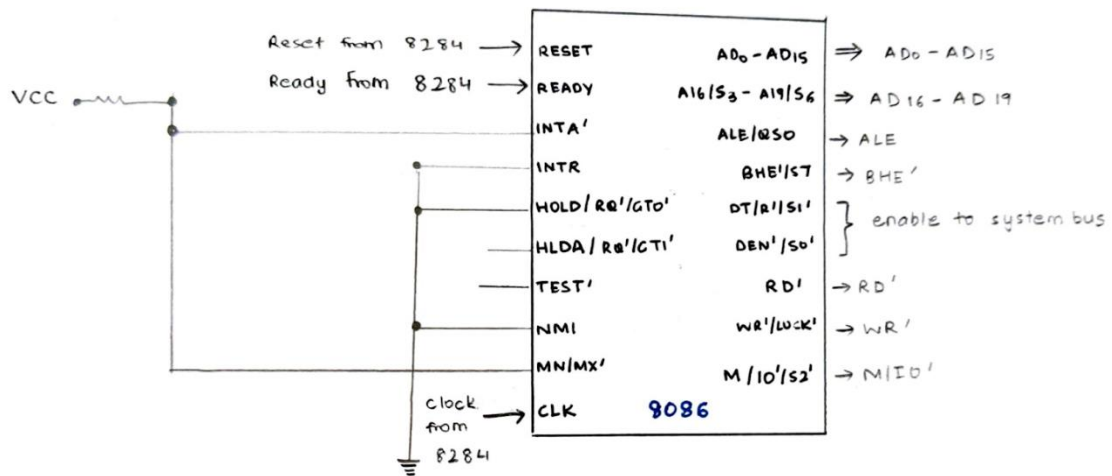 Reset from 8284 → RESET
Ready from 8284 → READY
VCC
INTA'
INTR
HOLD/RQ'/GT0'
HLDA/RQ'/GT1'
TEST'
NMI
MN/MX'
Clock from 8284 → CLK
8086
AD0 - AD15 ⇒ AD0 - AD15
A16/S3 - A19/S6 ⇒ AD16 - AD19
ALE/QS0 → ALE
BHE'/S7 → BHE'
DT/R'/S1'
DEN'/S0'
} enable to system bus
RD' → RD'
WR'/LOCK' → WR'
M/IO'/S2' → M/IO'